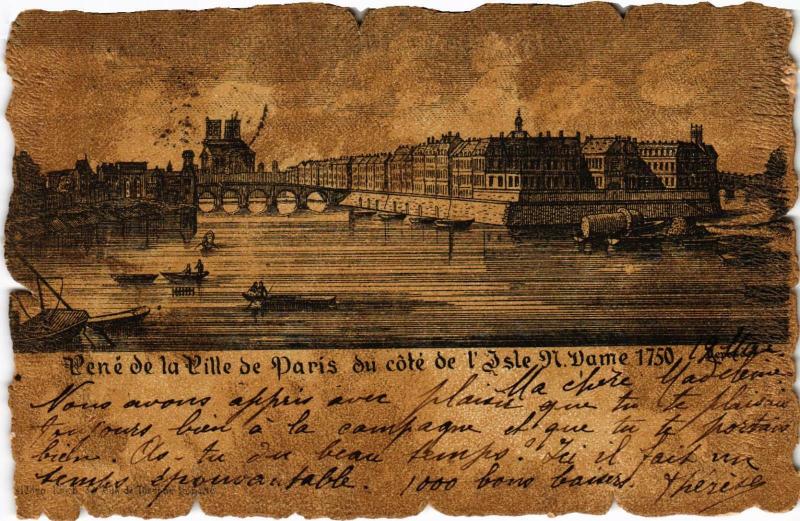 Vené de la Ville de Paris du côté de l'Isle N. Dame 1750
Ma chère Madeleine
Nous avons appris avec plaisir que tu te plaisais
toujours bien à la campagne et que tu te portais
bien. As-tu du beau temps? Ici il fait un
temps épouvantable. 1000 bons baisers. Thérèse